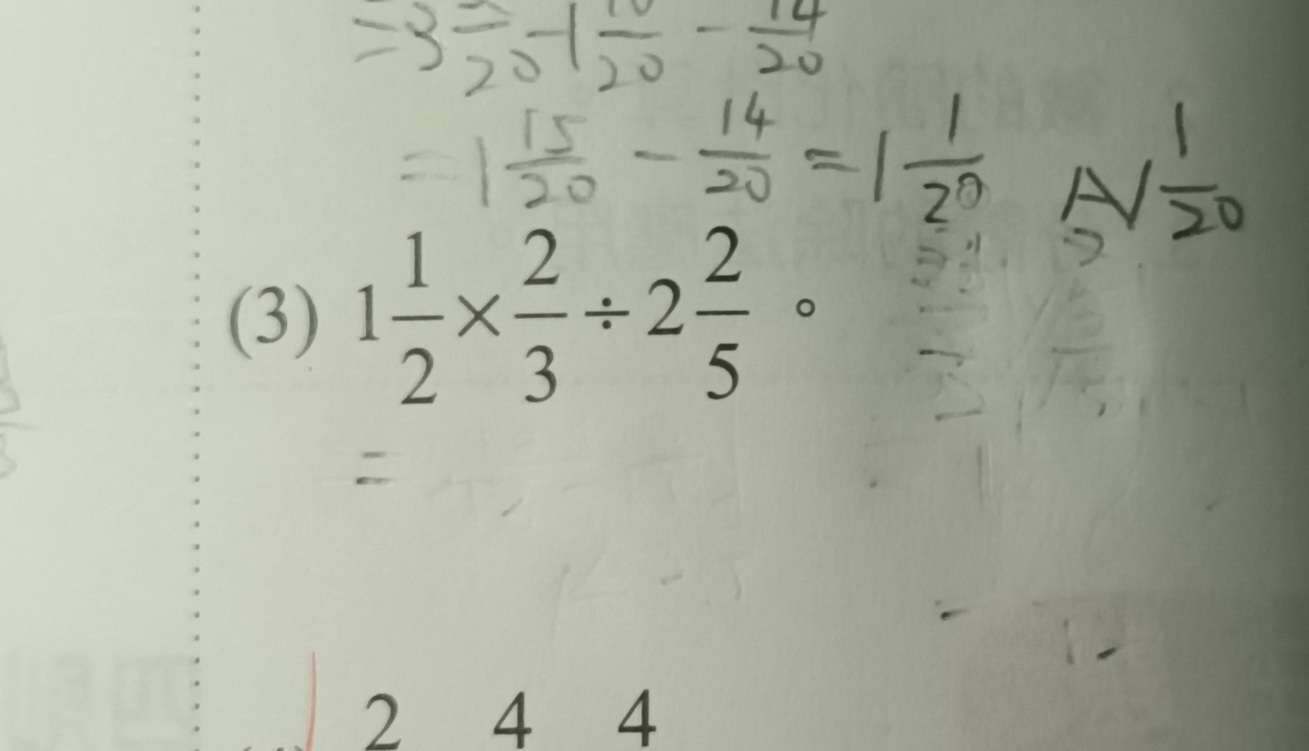 =3 /20 -1 10/20 - 14/20
=1 15/20 - 14/20 = 1 1/20 A/ 1 1/20
(3) 1 1/2 × 2/3 ÷ 2 2/5 。
=
2 4 4